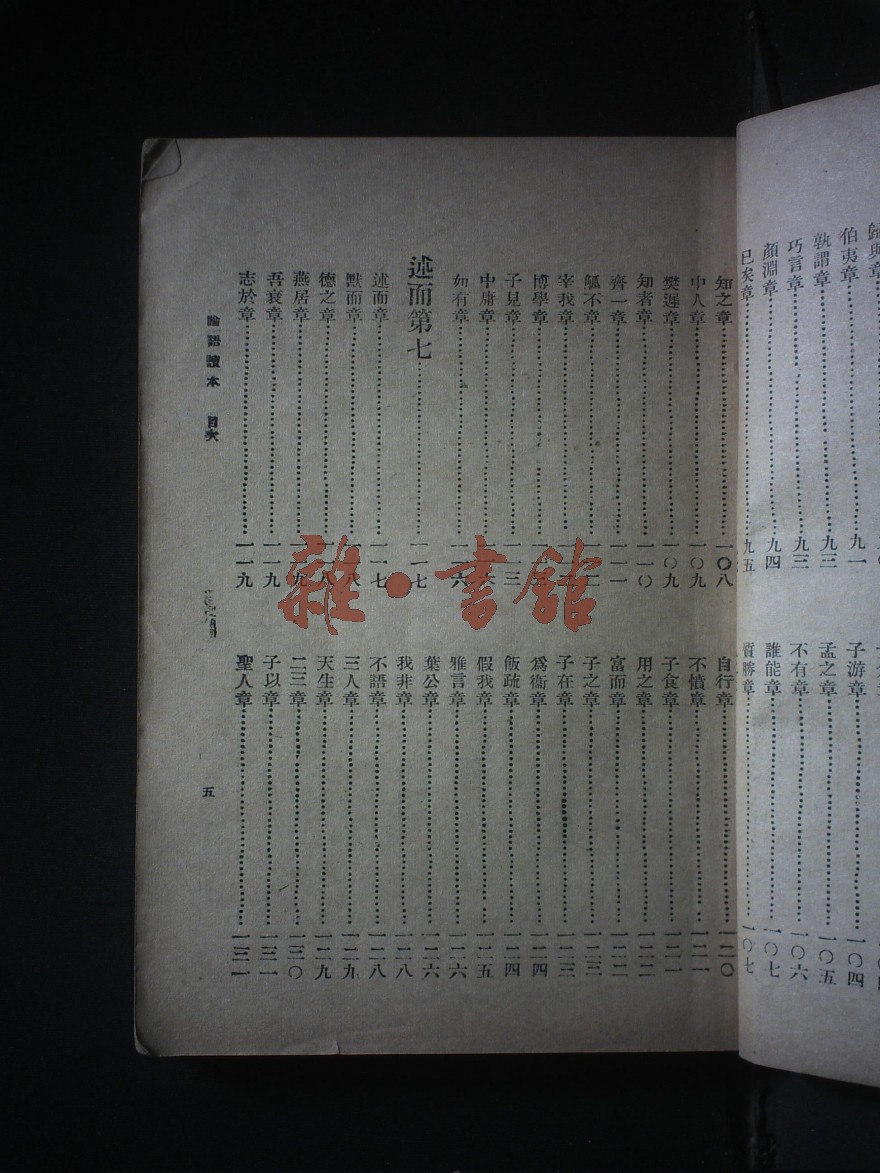 歸與章
伯夷章……九一
孰謂章……九三
巧言章……九三
顏淵章……九四
已矣章……九五
子游章……一〇四
孟之章……一〇五
不有章……一〇六
誰能章……一〇七
質勝章……一〇七
知之章……一〇八
中人章……一〇九
樊遲章……一〇九
知者章……一一〇
齊一章……一一一
觚不章……一一二
宰我章……
博學章……
子見章……一一三
中庸章……
如有章……一一六
述而第七……一一七
述而章……一一七
默而章……一一八
德之章……一一八
燕居章……一一九
吾衰章……一一九
志於章……一一九
自行章……一二〇
不憤章……一二一
子食章……一二一
用之章……一二二
富而章……一二二
子之章……一二三
子在章……一二三
爲衞章……一二四
飯疏章……一二四
假我章……一二五
雅言章……一二六
葉公章……一二六
我非章……一二八
不語章……一二八
三人章……一二九
天生章……一二九
二三章……一三〇
子以章……一三一
聖人章……一三一
論語讀本 目次
五
雜·書館